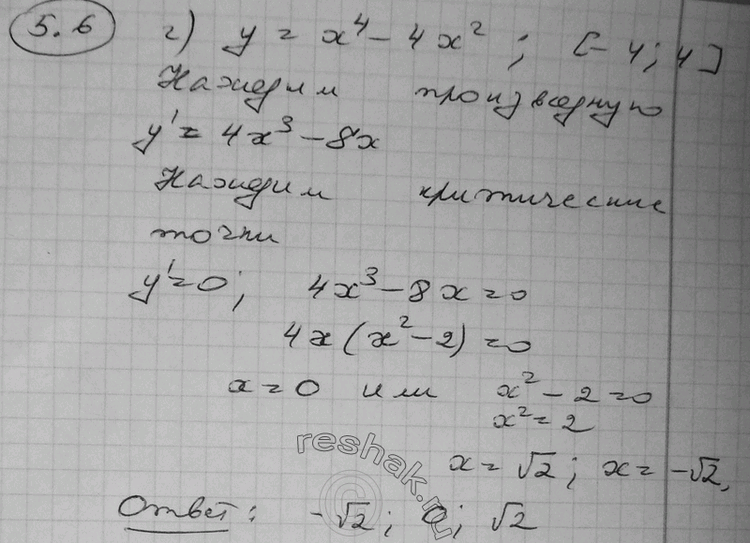 5.6 г) y = x⁴ - 4x² ; [-4; 4]
Находим производную
y' = 4x³ - 8x
Находим критические
точки
y' = 0; 4x³ - 8x = 0
4x(x² - 2) = 0
x = 0 или x² - 2 = 0
x² = 2
reshak.ru
x = √2; x = -√2,
Ответ: -√2; 0; √2